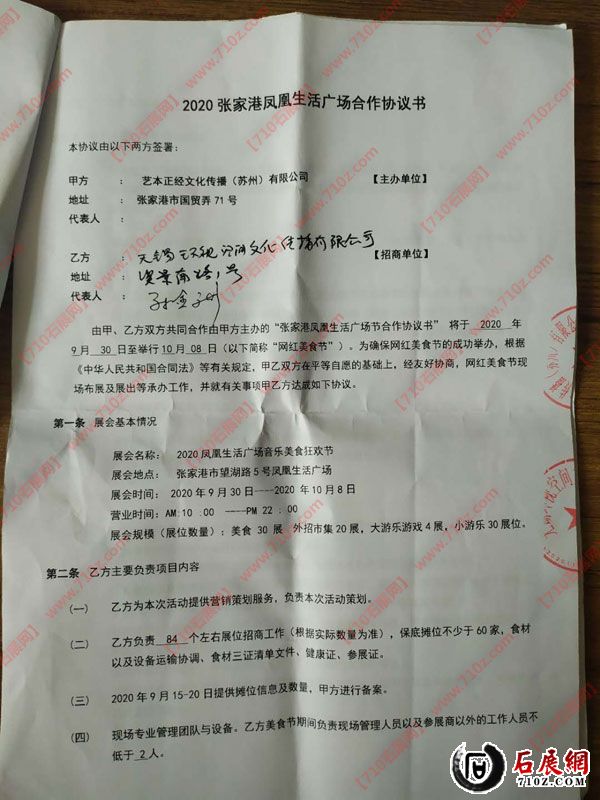 2020 张家港凤凰生活广场合作协议书
本协议由以下两方签署：
甲方 ： 艺本正经文化传播（苏州）有限公司 【主办单位】
地址 ： 张家港市国贸弄71号
代表人 ：
乙方 ： 无锡 空间文化传播有限公司 【招商单位】
地址 ： 号
代表人 ：
由甲、乙方双方共同合作由甲方主办的“张家港凤凰生活广场节合作协议书” 将于 2020 年
9月 30 日至举行 10 月 08 日（以下简称“网红美食节”）。为确保网红美食节的成功举办，根据
《中华人民共和国合同法》等有关规定，甲乙双方在平等自愿的基础上，经友好协商，网红美食节现
场布展及展出等承办工作，并就有关事项甲乙方达成如下协议。
第一条 展会基本情况
展会名称： 2020凤凰生活广场音乐美食狂欢节
展会地点： 张家港市望湖路5号凤凰生活广场
展会时间： 2020年9月30日----2020年10月8日
营业时间：AM:10 :00 ----PM 22 : 00
展会规模（展位数量）：美食 30 展 外招市集 20 展，大游乐游戏 4 展，小游乐 30 展位。
第二条 乙方主要负责项目内容
（一） 乙方为本次活动提供营销策划服务，负责本次活动策划。
（二） 乙方负责 84 个左右展位招商工作（根据实际数量为准），保底摊位不少于 60 家，食材
以及设备运输协调、食材三证清单文件、健康证、参展证。
（三） 2020年9月15-20日提供摊位信息及数量，甲方进行备案。
（四） 现场专业管理团队与设备。乙方美食节期间负责现场管理人员以及参展商以外的工作人员不
低于 2 人。
【710石展网】
www.710z.com
石展網
www.710z.com